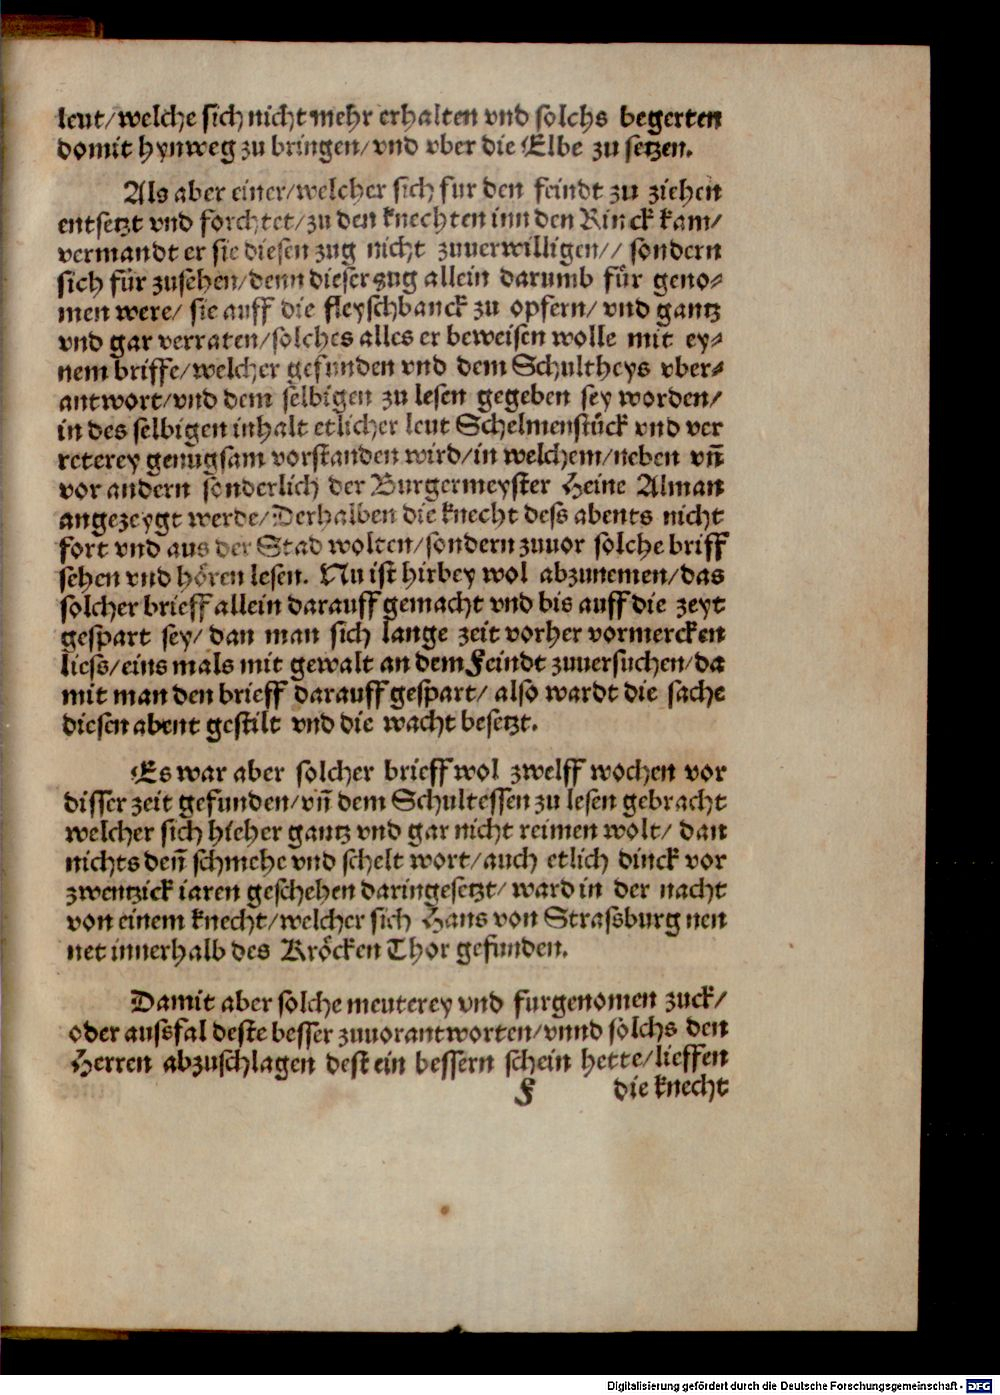 leut/welche sich nicht mehr erhalten vnd solchs begerten
domit hynweg zu bringen/vnd vber die Elbe zu setzen.
Als aber einer/welcher sich fur den feindt zu ziehen
entsetzt vnd forchtet/zu den knechten inn den Rinck kam/
vermandt er sie diesen zug nicht zuuerwilligen// sondern
sich für zusehen/denn dieser zug allein darumb für geno⸗
men were/ sie auff die fleyschbanck zu opfern/ vnd gantz
vnd gar verraten/solches alles er beweisen wolle mit ey⸗
nem briffe/welcher gefunden vnd dem Schultheys vber⸗
antwort/vnd dem selbigen zu lesen gegeben sey worden/
in des selbigen inhalt etlicher leut Schelmenstück vnd ver
reterey genugsam vorstanden wird/in welchem/neben vñ
vor andern sonderlich der Burgermeyster Heine Alman
angezeygt werde/Derhalben die knecht dess abents nicht
fort vnd aus der Stad wolten/sondern zuuor solche briff
sehen vnd hören lesen. Nu ist hirbey wol abzunemen/das
solcher brieff allein darauff gemacht vnd bis auff die zeyt
gespart sey/ dan man sich lange zeit vorher vormercken
liess/eins mals mit gewalt an dem Feindt zuuersuchen/da
mit man den brieff darauff gespart/ also wardt die sache
diesen abent gestilt vnd die wacht besetzt.
Es war aber solcher brieff wol zwelff wochen vor
disser zeit gefunden/vñ dem Schultessen zu lesen gebracht
welcher sich hieher gantz vnd gar nicht reimen wolt/ dan
nichts deñ schmehe vnd schelt wort/auch etlich dinck vor
zwentzick iaren geschehen darin gesetzt/ ward in der nacht
von einem knecht/welcher sich Hans von Straßburg nen
net innerhalb des Kröcken Thor gefunden.
Damit aber solche meuterey vnd furgenomen zuck/
oder außfal deste besser zuuorantworten/vnnd solchs den
Herren abzuschlagen dest ein bessern schein hette/lieffen
F die knecht
Digitalisierung gefördert durch die Deutsche Forschungsgemeinschaft - DFG